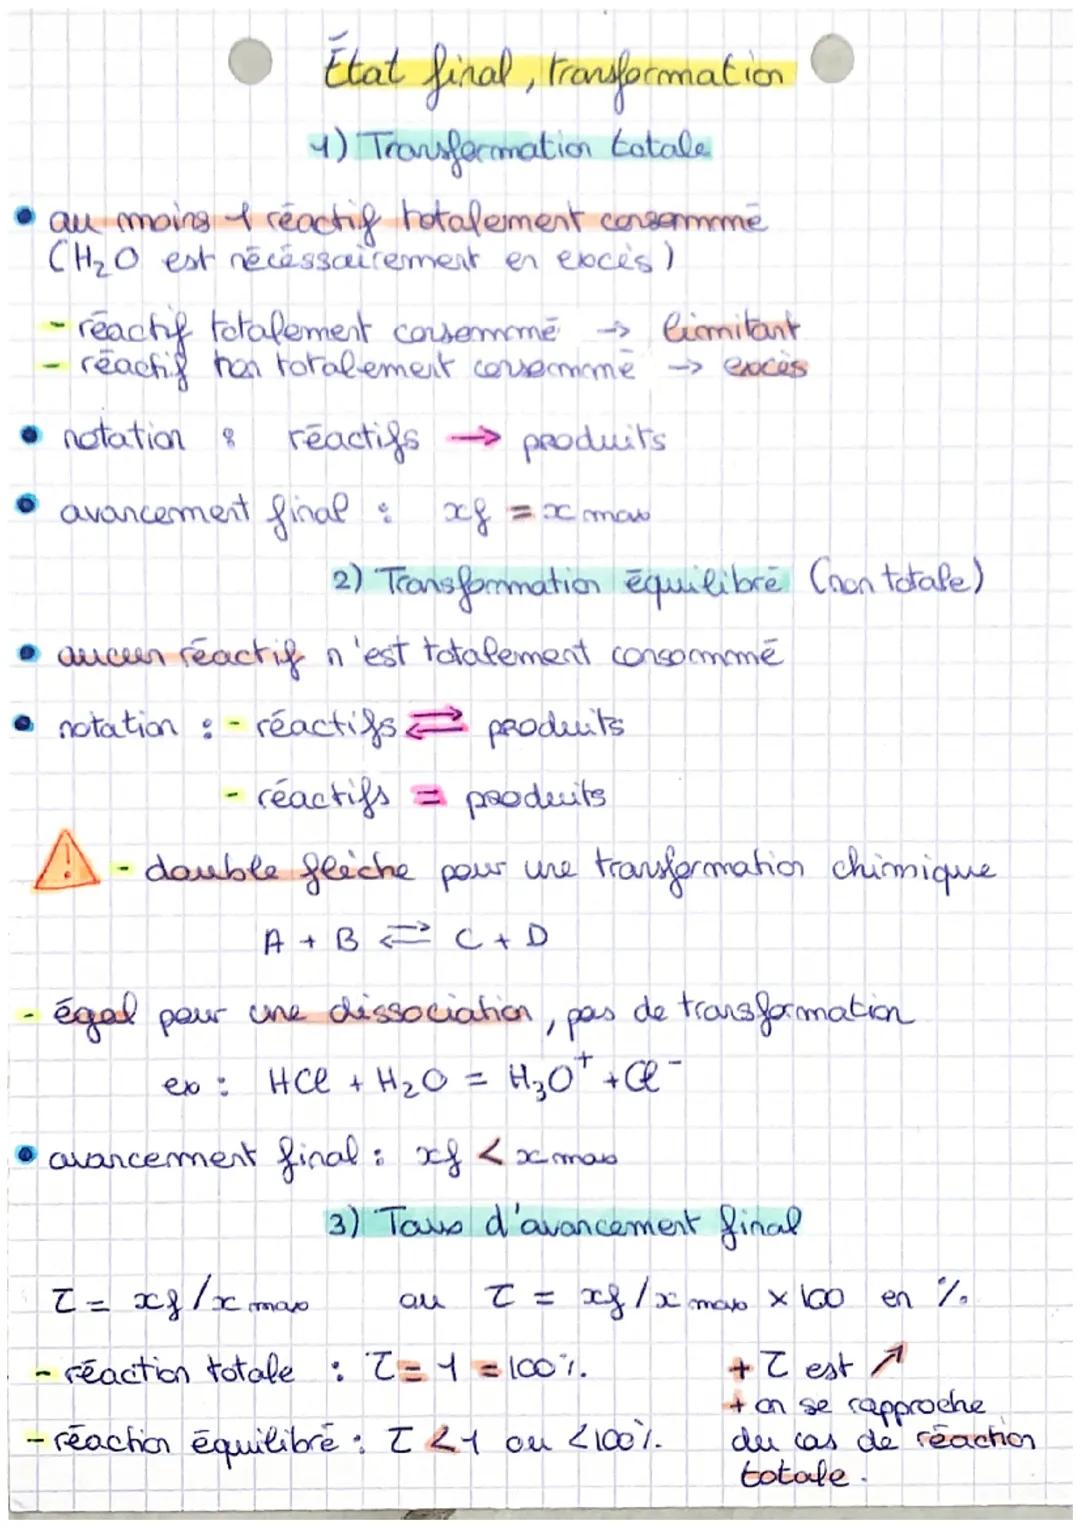 État final, transformation
1) Transformation totale
• au moins 1 réactif totalement consommé
(H₂O est nécéssairement en excès)
- réactif totalement consommé → limitant
- réactif non totalement consommé → excès
• notation : réactifs → produits
• avancement final : xf = x max
2) Transformation équilibré (non totale)
• aucun réactif n'est totalement consommé
• notation : - réactifs ⇄ produits
- réactifs = produits
⚠ - double flèche pour une transformation chimique
A + B ⇄ C + D
- égal pour une dissociation, pas de transformation
ex : HCl + H₂O = H₃O⁺ + Cl⁻
• avancement final : xf < x max
3) Taux d'avancement final
τ = xf / x max ou τ = xf / x max × 100 en %.
- réaction totale : τ = 1 = 100%.
+ τ est ↗
+ on se rapproche
- réaction équilibré : τ < 1 ou < 100%.
du cas de réaction
totale.